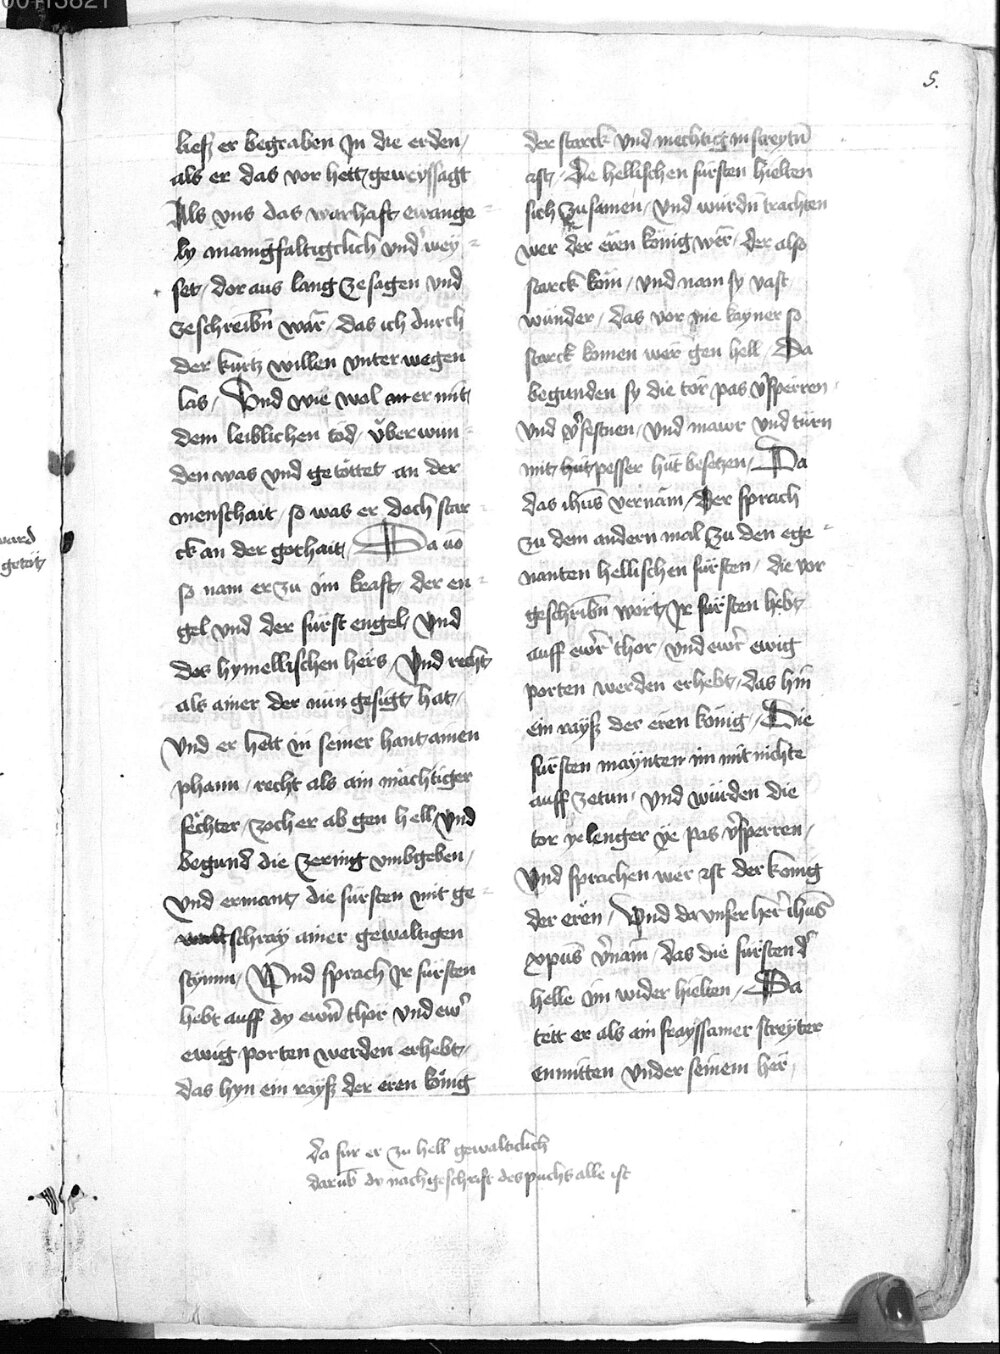 5.
liesz er begraben Jn die erden /
als er das vor hett geweyssagt
Als vns das warhaft ewange
ly manigfaltigclich vnd wey
set / dor aus lang zesagen vnd
zeschreibn̄ wār / das ich durch
der kurtz willen vnter wegen
las / Vnd wie wol an er mit
dem leiblichen tod / v̈berwun
den was vnd getöttet an der
menschait / so was er doch star
ck an der gothait / Da
so nam er zu im kraft / der en
gel vnd der fürst engel / vnd
des hymellischen hërs / Vnd recht
als ainer der nün gesigt hat /
vnd er hett in seiner hant ainen
phann / recht als ain mächtiger
fëchter / zoch er ab gen hell / vnd
begund die zering vmbgeben /
vnd ermant / die fürsten mit ge
schray ainer gewaltigen
stymm / Vnd sprach Jr fürsten
hebt auff dy ewrn̄ thör vnd ewr̄
ewig porten werden erhebt /
das hyn ein raysz der eren könig
der starck vnd mechtig in streytn̄
ist / die hellischen fürsten hielten
sich zusamen / vnd würdn̄ trachten
wer der ëren könig wër / der also
starck köm / vnd nam sy vast
wunder / das vor nie kayner so
starck komen wer gen hell / Da
begunden sy die tör pas v̄sperren
vnd v̄festnen / vnd mawr vnd türn
mit pesser hüt besetzen / Da
das ihūs vernam / der sprach
zu dem andern mal zu den ege
nanten hellischen fürsten / die vor
geschribn̄ wort / Jr fürsten hebt
auff ewr̄ thor / vnd ewr̄ ewig
porten werden erhebt / das hin
ein raysz der eren könig / Die
fürsten maynten im mit nichte
auff zetun / vnd würden die
tor ye lenger ye pas v̄sperren /
vnd sprachen wer ist der konig
der eren / Vnd da vnser her̄ ihūs
xpūs v̄nam / das die fürsten d̄
helle im wider hielten / Da
tëtt er als ain frayssamer streyter
enmitten vnder seinem her /
da fur er zu hell gewalticlich
darūb dy nachgeschrift des puchs alle ist
ward